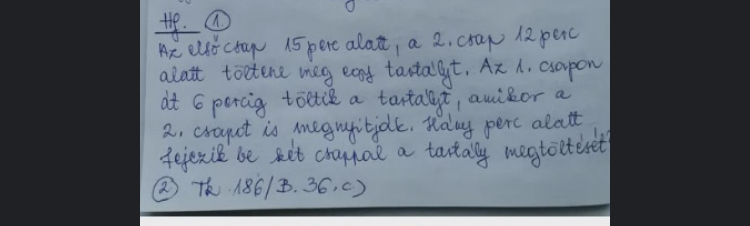 Hf. ①
Az első csap 15 perc alatt, a 2. csap 12 perc
alatt töltene meg egy tartályt. Az 1. csapon
át 6 percig töltik a tartályt, amikor a
2. csapot is megnyitják. Hány perc alatt
fejezik be két csappal a tartály megtöltését?
② Tk. 186/B. 36. c)